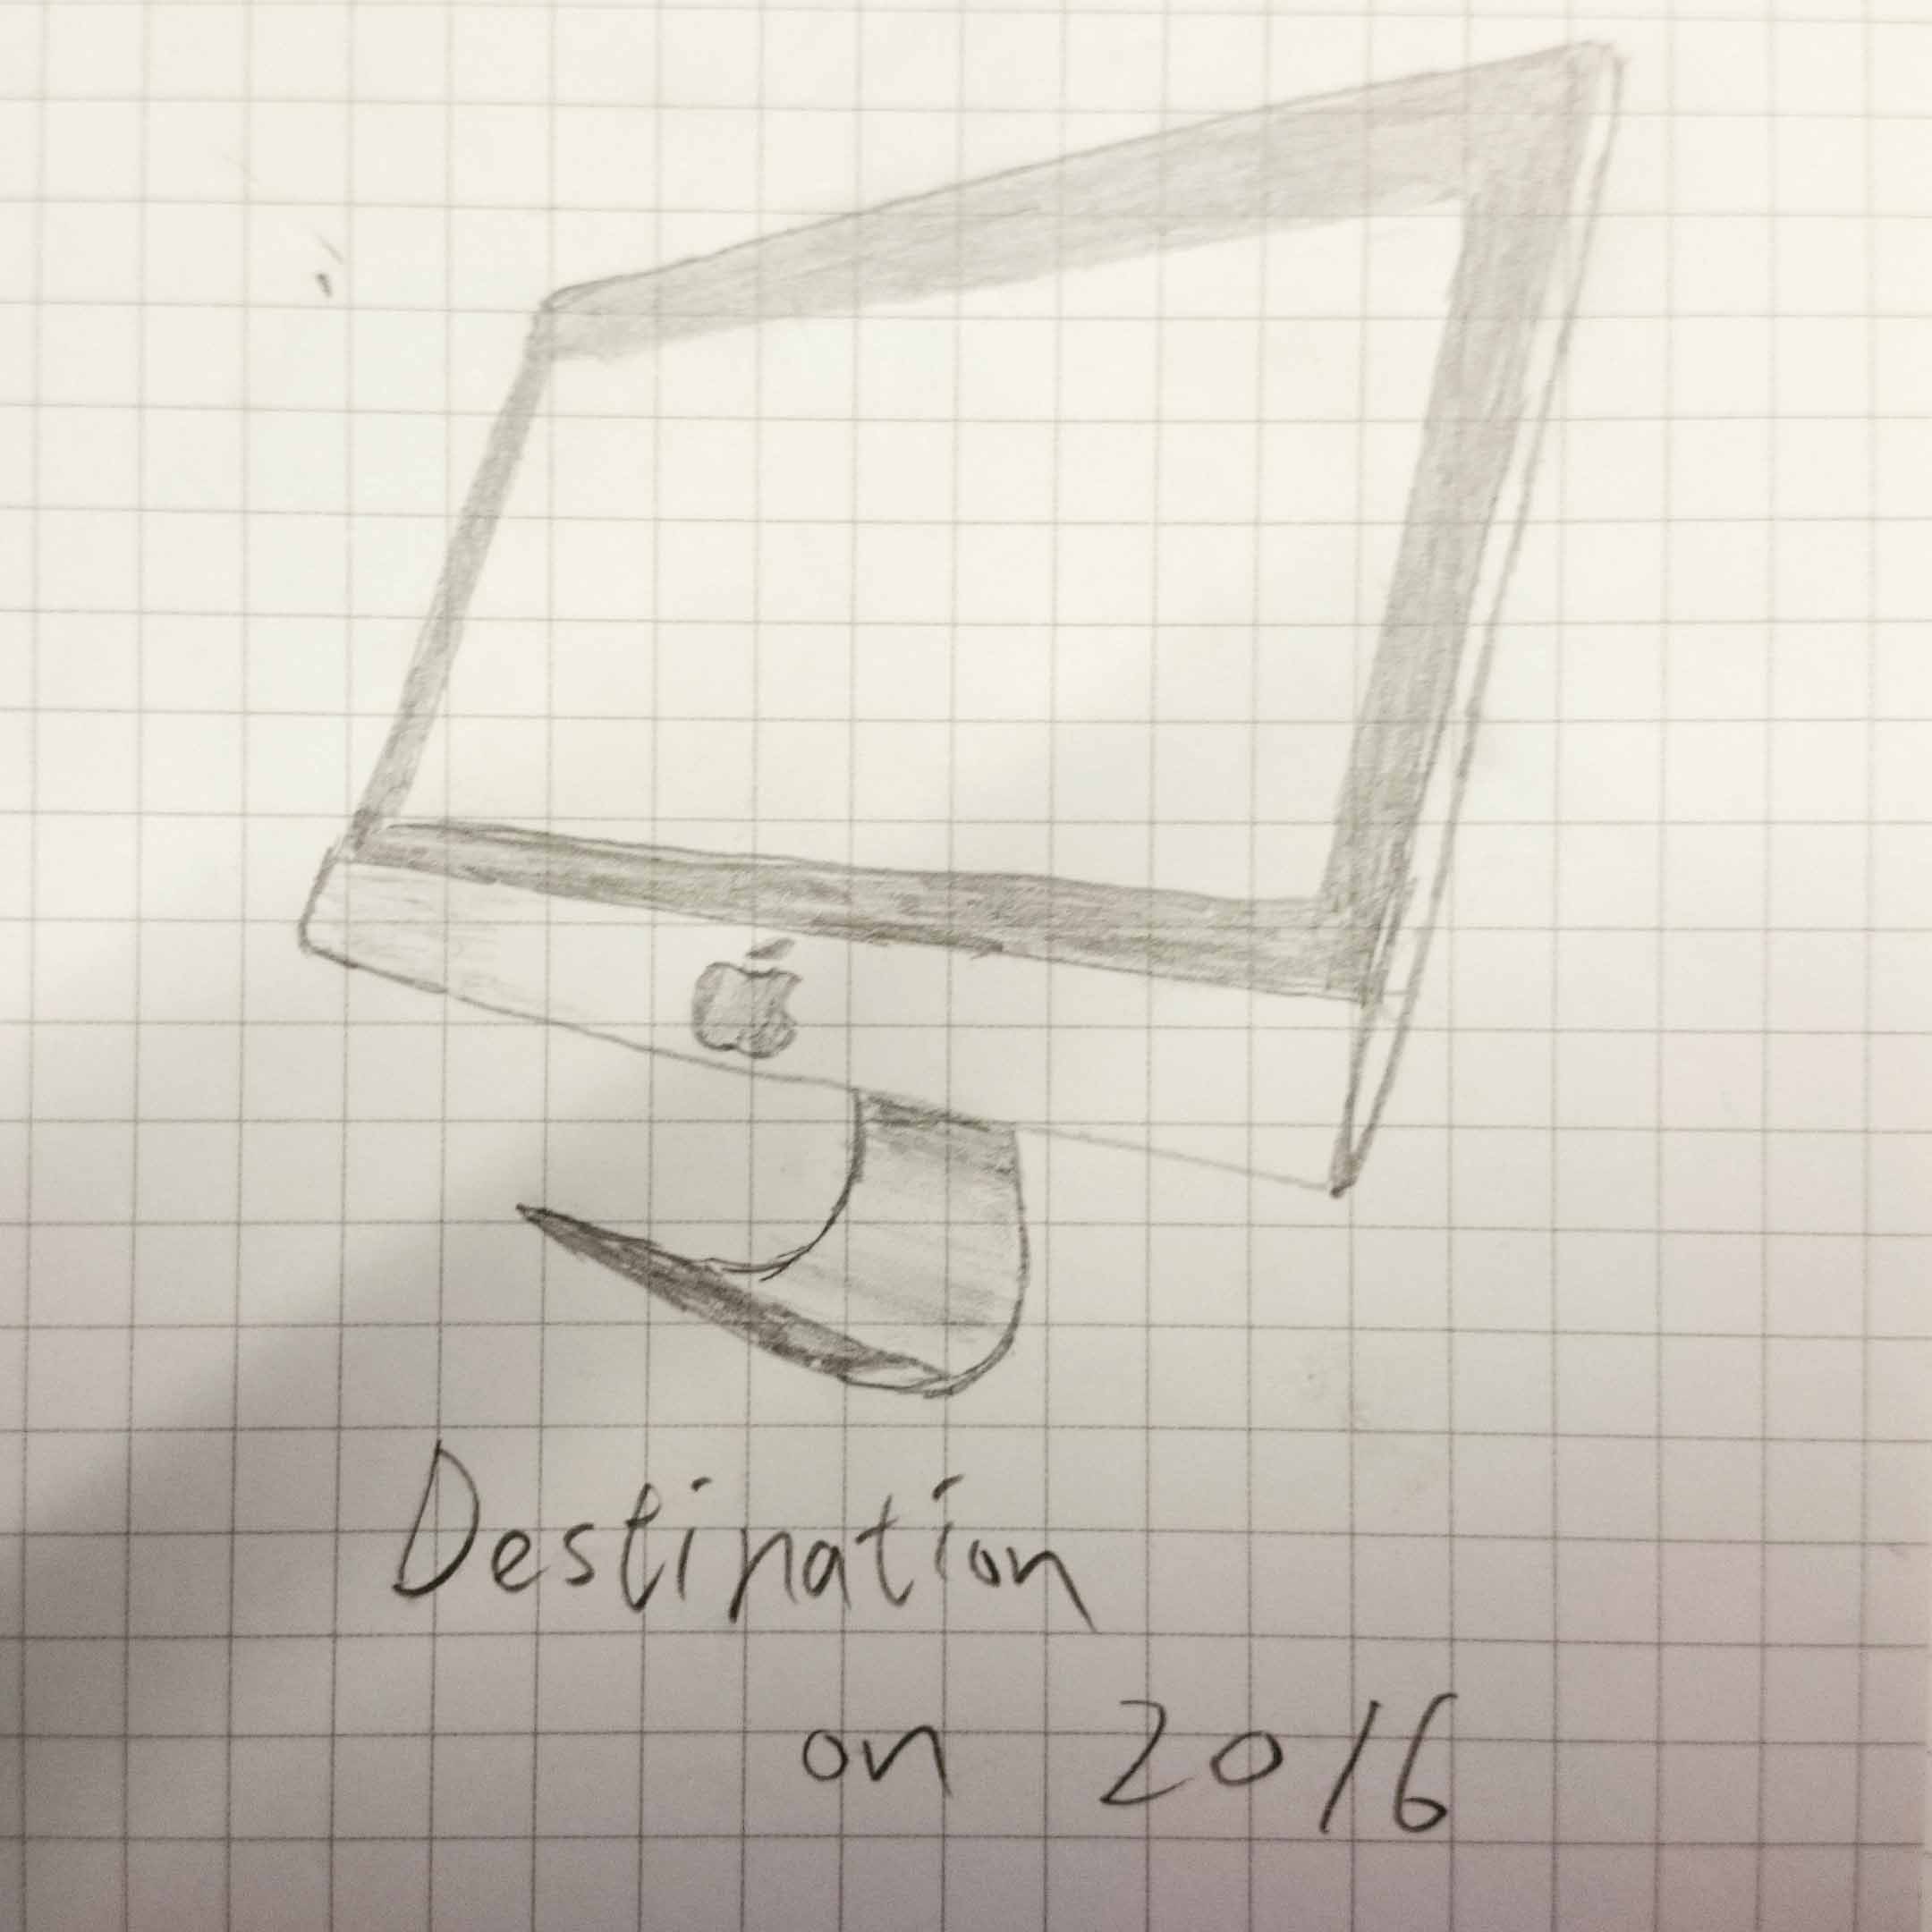 Destination
on 2016